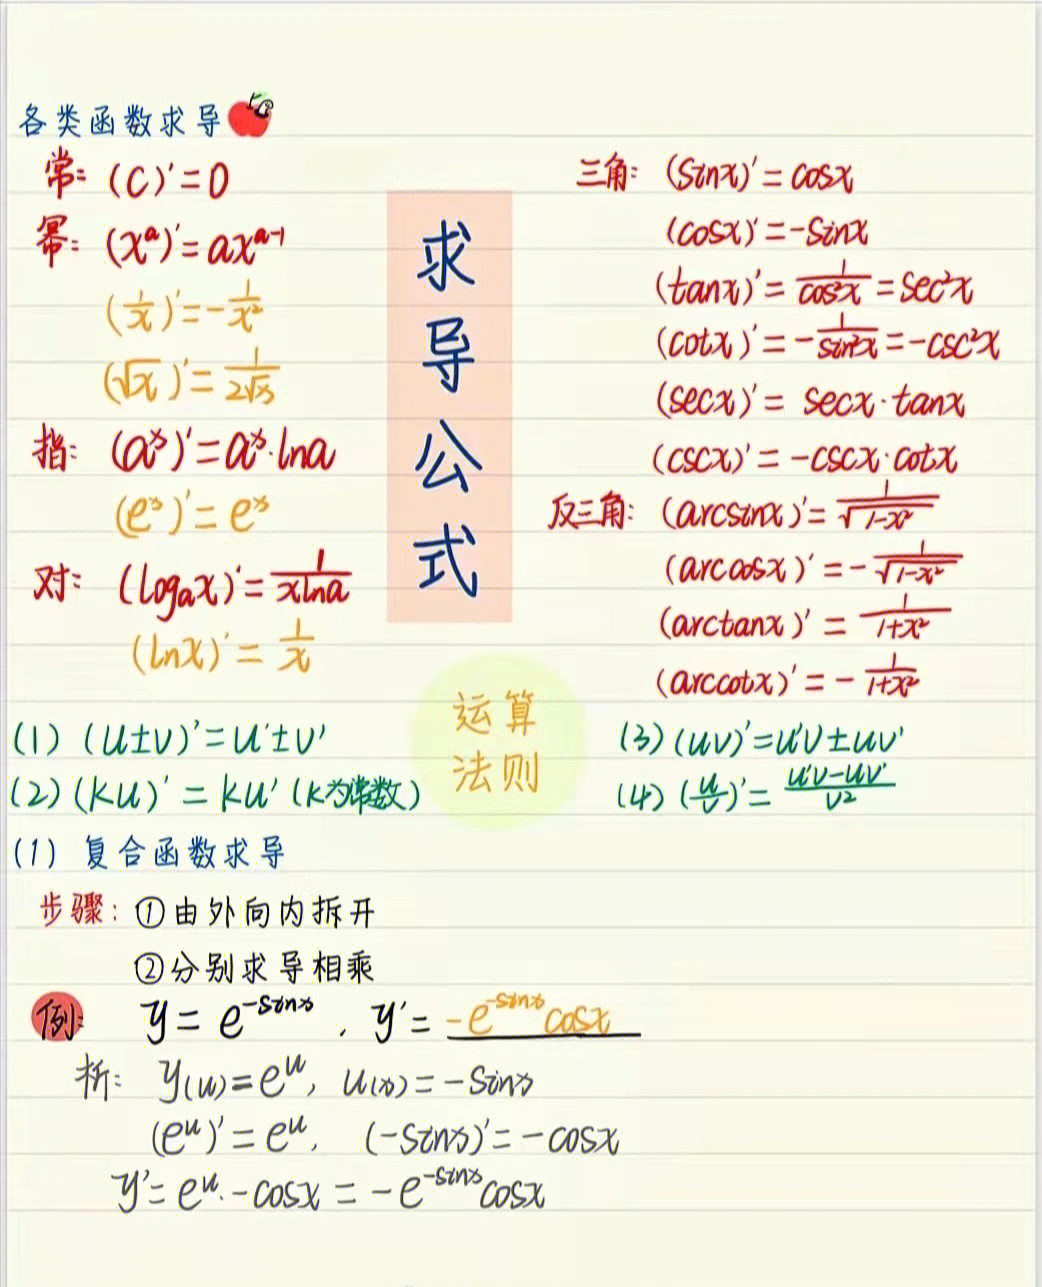 各类函数求导
常: (C)'=0
幂: (xᵃ)'=axᵃ⁻¹
(1/x)'=-1/x²
(√x)'=1/(2√x)
指: (aˣ)'=aˣ·lna
(eˣ)'=eˣ
对: (logₐx)'=1/(xlna)
(lnx)'=1/x
求导公式
三角: (sinx)'=cosx
(cosx)'=-sinx
(tanx)'=1/cos²x=sec²x
(cotx)'=-1/sin²x=-csc²x
(secx)'=secx·tanx
(cscx)'=-cscx·cotx
反三角: (arcsinx)'=1/√(1-x²)
(arccosx)'=-1/√(1-x²)
(arctanx)'=1/(1+x²)
(arccotx)'=-1/(1+x²)
运算
法则
(1) (u±v)'=u'±v'
(2) (ku)'=ku' (k为常数)
(3) (uv)'=u'v±uv'
(4) (u/v)'=(u'v-uv')/v²
(1) 复合函数求导
步骤: ①由外向内拆开
②分别求导相乘
例: y=e⁻ˢⁱⁿˣ . y'=-e⁻ˢⁱⁿˣcosx
析: y(u)=eᵘ, u(x)=-sinx
(eᵘ)'=eᵘ, (-sinx)'=-cosx
y'=eᵘ·-cosx=-e⁻ˢⁱⁿˣcosx